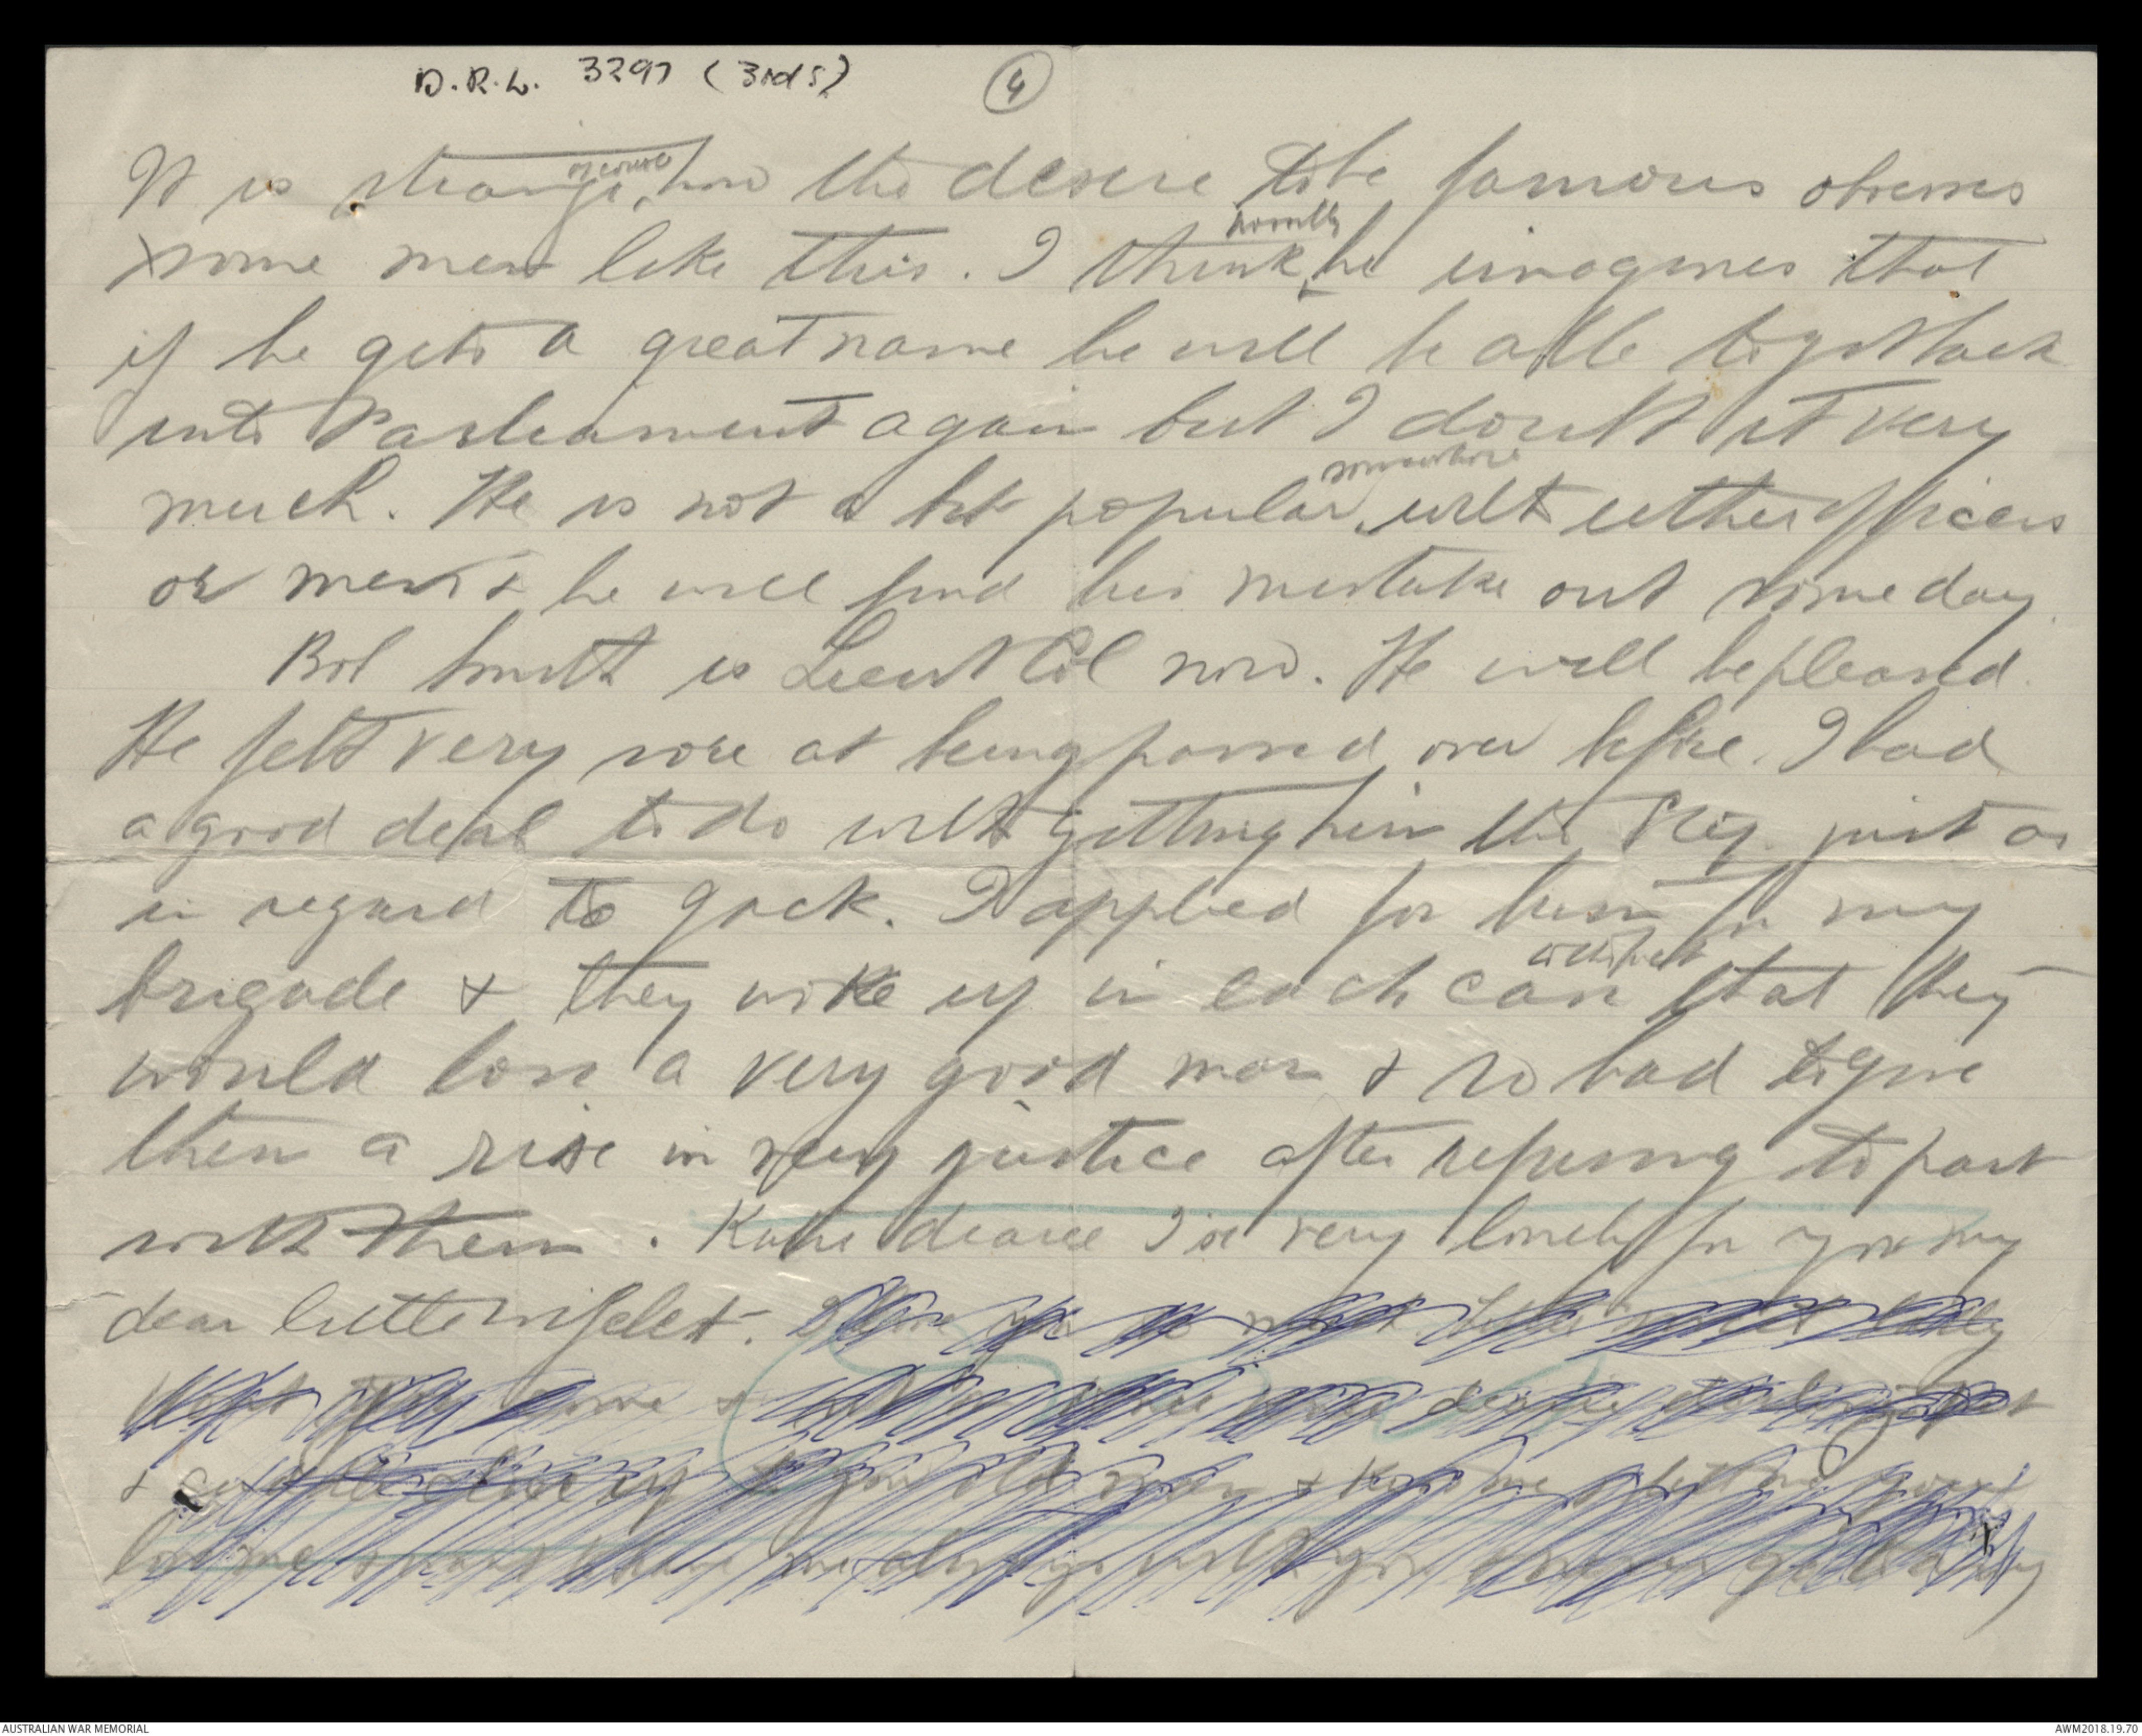 D.R.L. 3297 (3rd S)
4
It is strange, of course, how the desire to be famous obsesses
some men like this. I think possibly he imagines that
if he gets a great name he will be able to get back
into Parliament again but I doubt it very
much. He is not a bit popular somewhere with either officers
or men & he will find his mistake out some day.
Bob Smith is Lieut Col now. He will be pleased.
He felt very sore at being passed over before. I had
a good deal to do with getting him the Reg. just as
in regard to Jack. I applied for him for my
brigade & they woke up in each case that they
would lose a very good man & so had to give
them a rise in very justice after refusing to part
with them. Katie dearie I'se very lonely for you my
dear little wifelet. I love you so much
come &
& close up to your old man & kiss me &
love me & have me always with you
AUSTRALIAN WAR MEMORIAL
AWM2018.19.70